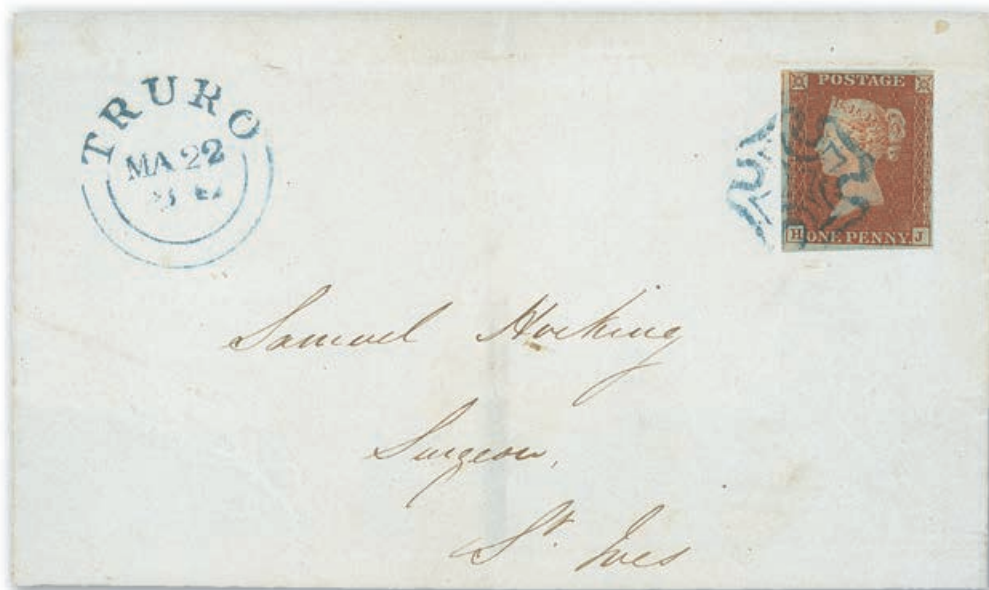 TRURO
MA 22
POSTAGE
H ONE PENNY. J
Samuel Hocking
Surgeon,
St. Ives